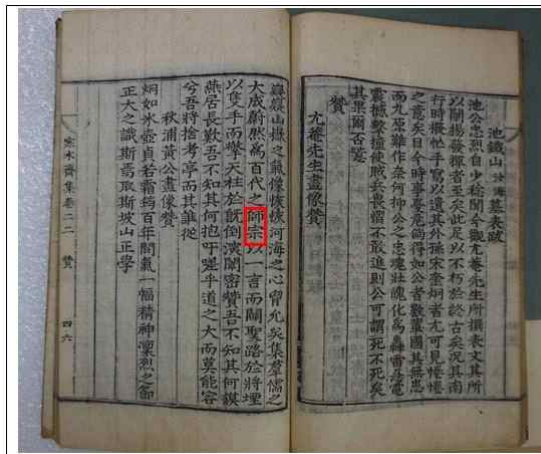 池鐵山墓表跋
池公忠烈自少稔聞今觀尤菴先生所撰表文其所
以闡揚發揮者至矣此足以不朽於終古矣況其南
行時擬忙手寫以遺其外孫宋奎炯者尤可見惓惓
之意矣目今時事憂虞倘得如公者數輩國其無患
而九原難作奈何抑公之忠魂壯魄化爲轟雷
震撼擊撞使賊膽喪褫不敢進則公可謂死不死矣
其果爾否噫
贊
尤菴先生畫像贊
巖巖山嶽之氣像恢恢河海之心胷允矣集羣儒之
大成蔚然爲百代之師宗以一言而闢聖路於將堙
以隻手而擎天柱於旣倒深闇密贊吾不知其何謨
燕居長歎吾不知其何抱吁嗟乎道之大而莫能容
兮吾將捨考亭而其誰從
秋浦黃公畫像贊
炯如氷壺貞若霜筠百年間氣一幅精神凜烈之節
正大之識斯焉取斯坡山正學
寒木齋集卷二二 贊 四六